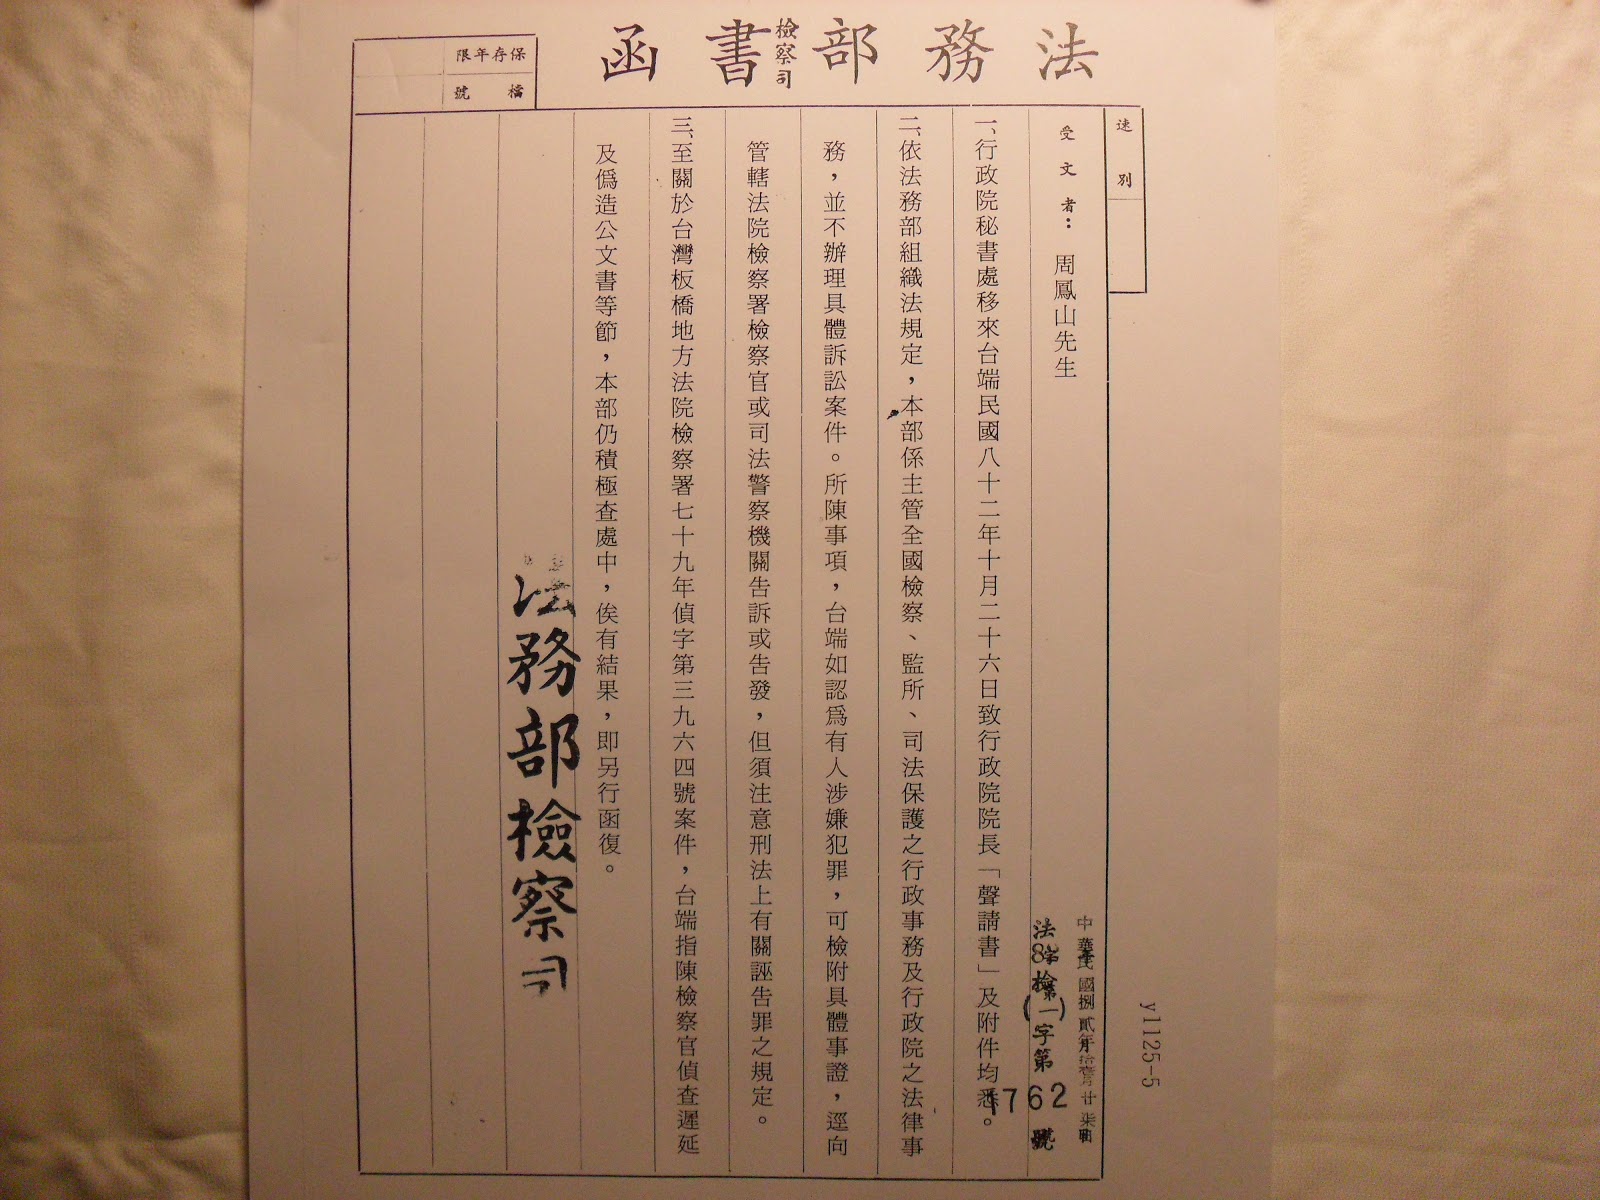 法務部檢察司書函
保存年限
檔號
速別
受文者：周鳳山先生
中華民國捌貳年拾壹月廿柒日
法82檢(一)字第1762號
一、行政院秘書處移來台端民國八十二年十月二十六日致行政院院長「聲請書」及附件均悉。
二、依法務部組織法規定，本部係主管全國檢察、監所、司法保護之行政事務及行政院之法律事
務，並不辦理具體訴訟案件。所陳事項，台端如認為有人涉嫌犯罪，可檢附具體事證，逕向
管轄法院檢察署檢察官或司法警察機關告訴或告發，但須注意刑法上有關誣告罪之規定。
三、至關於台灣板橋地方法院檢察署七十九年偵字第三九六四號案件，台端指陳檢察官偵查遲延
及偽造公文書等節，本部仍積極查處中，俟有結果，即另行函復。
法務部檢察司
y1125-5